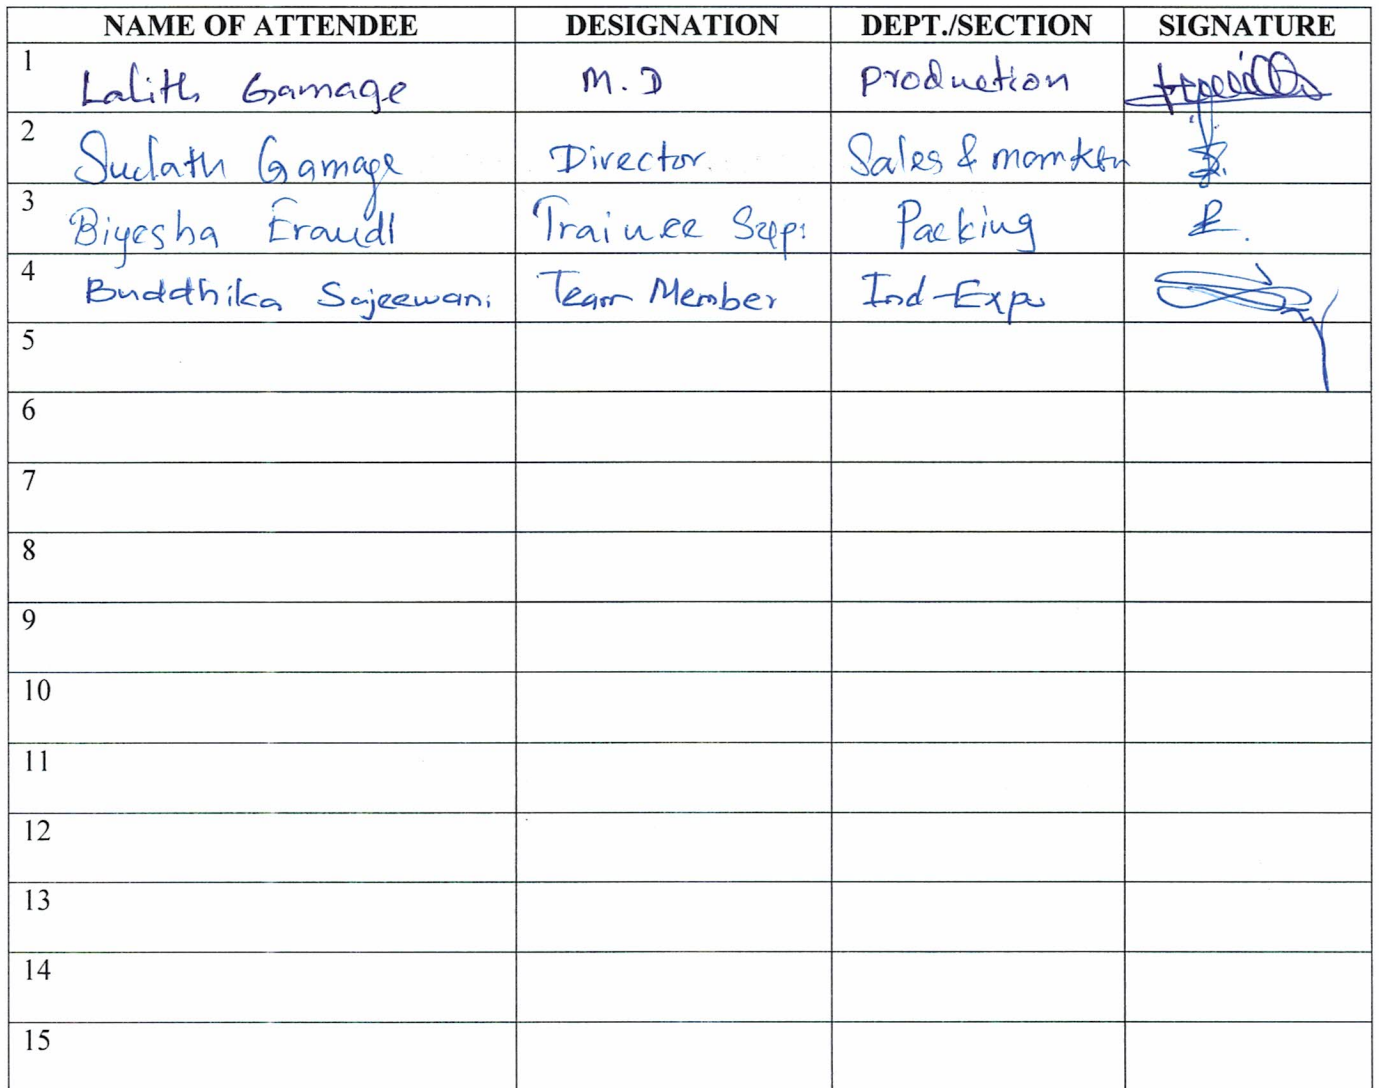 NAME OF ATTENDEE DESIGNATION DEPT./SECTION SIGNATURE
1 Lalith Gamage M.D Production
2 Sudath Gamage Director. Sales &
3 Biyesha Eraudi Trainee Sup: Packing
4 Buddhika Sajeewani Team Member Ind-Exp
5
6
7
8
9
10
11
12
13
14
15